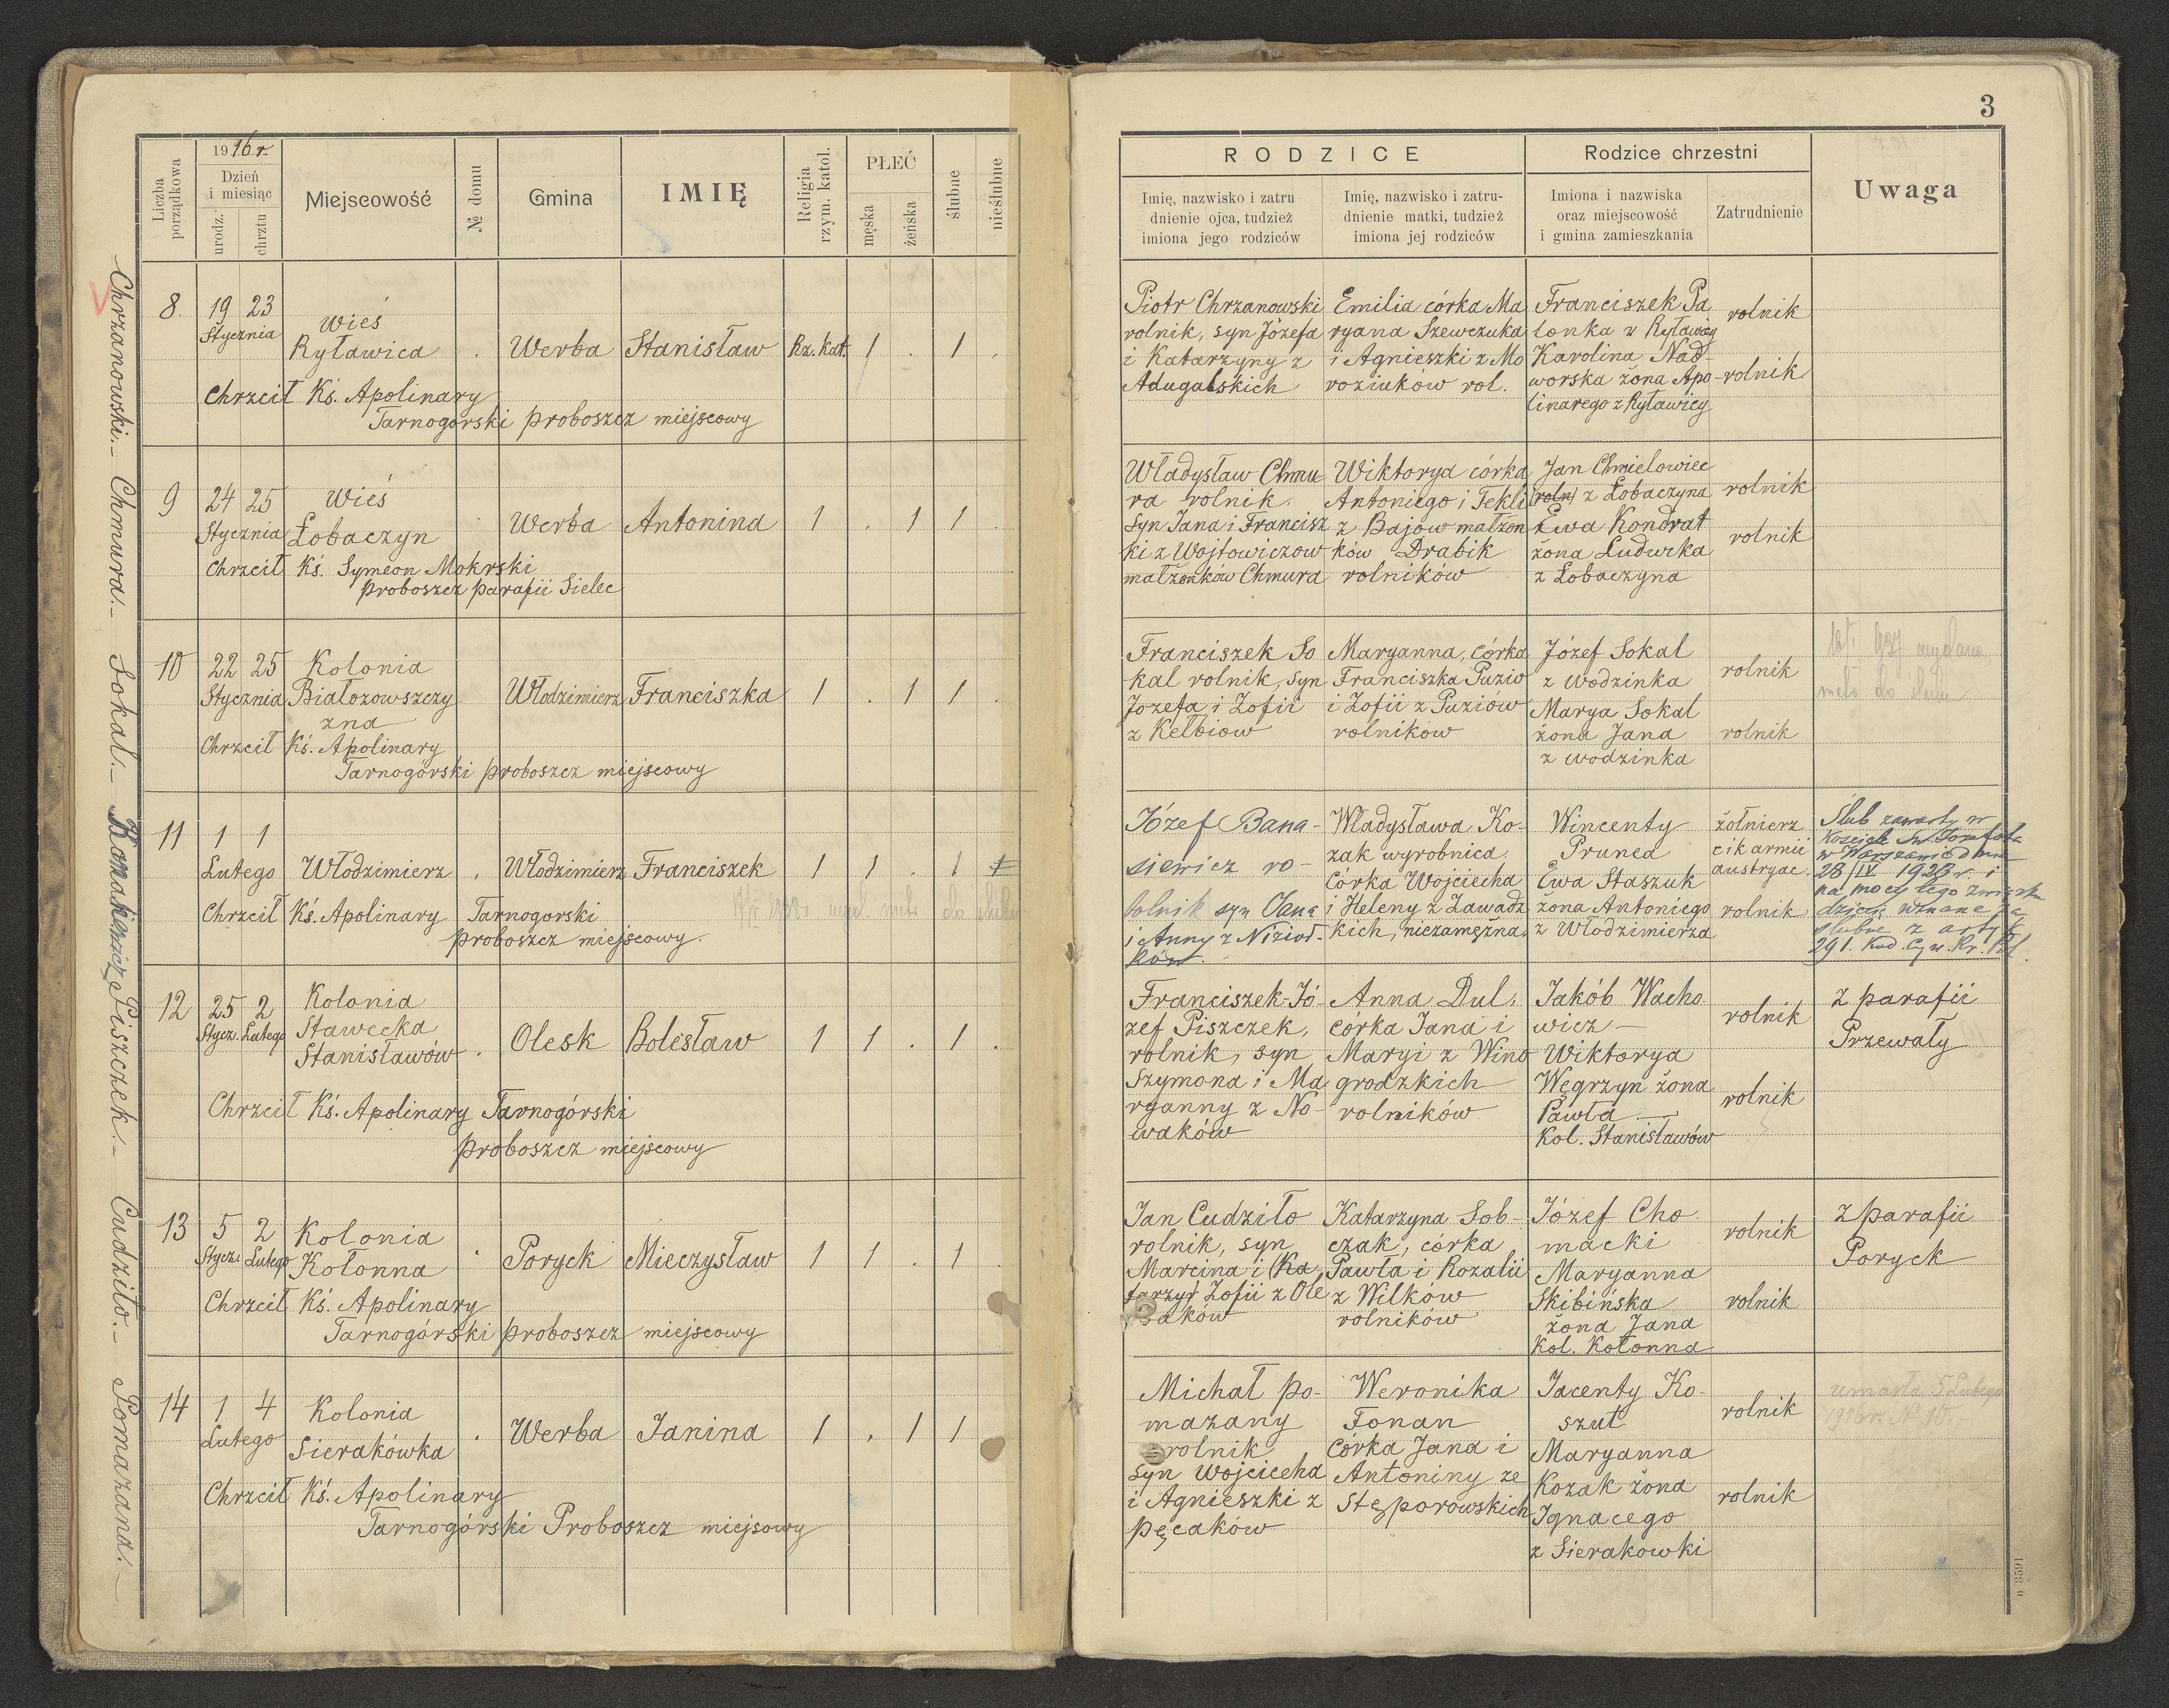 1916 r.
Liczba porządkowa
Dzień i miesiąc
urodz.
chrztu
Miejscowość
№ domu
Gmina
IMIĘ
Religia rzym. katol.
PŁEĆ
męska
żeńska
ślubne
nieślubne
Chrzanowski.- Chmura.- Sokal.- Piszczek.- Cudziło.- Pomazana.-
8 19 23 Stycznia
Wieś
Ryławica . Werba Stanisław Rz. Kat. 1 . 1 .
Chrzcił Kś. Apolinary
Tarnogórski proboszcz miejscowy
9 24 25 Stycznia
Wieś
Łobaczyn . Werba Antonina 1 . 1 1 .
Chrzcił Kś. Symeon Mokrski
proboszcz parafii Sielec
10 22 25 Stycznia
Kolonia
Białozowszczy
zna Włodzimierz Franciszka 1 . 1 1 .
Chrzcił Kś. Apolinary
Tarnogórski proboszcz miejscowy
11 1 1
Lutego Włodzimierz . Włodzimierz Franciszek 1 1 . 1
Chrzcił Kś. Apolinary Tarnogorski
proboszcz miejscowy.
12 25 2
Stycz. Lutego
Kolonia
Stawecka
Stanisławów . Olesk Bolesław 1 1 . 1 .
Chrzcił Kś. Apolinary Tarnogórski
proboszcz miejscowy
13 5 2
Stycz. Lutego
Kolonia
Kołonna . Poryck Mieczysław 1 1 . 1 .
Chrzcił Kś. Apolinary
Tarnogórski proboszcz miejscowy
14 1 4
Lutego
Kolonia
Sierakówka . Werba Janina 1 . 1 1
Chrzcił Kś. Apolinary
Tarnogórski Proboszcz miejsowy
3
RODZICE
Rodzice chrzestni
Uwaga
Imię, nazwisko i zatru
dnienie ojca, tudzież
imiona jego rodziców
Imię, nazwisko i zatru-
dnienie matki, tudzież
imiona jej rodziców
Imiona i nazwiska
oraz miejscowość
i gmina zamieszkania
Zatrudnienie
Piotr Chrzanowski
rolnik, syn Józefa
i Katarzyny z
Adugalskich
Emilia córka Ma
ryana Szewczuka
i Agnieszki z Mo
roziuków rol.
Franciszek Pa
lonka z Ryławicy
Karolina Nad-
worska żona Apo-
linarego z Ryławicy
rolnik
rolnik
Władysław Chmu-
ra rolnik.
Syn Jana i Francisz
ki z Wojtowiczow
małżonków Chmura
Wiktorya córka
Antoniego i Tekli
z Bajow małżon
ków Drabik
rolników
Jan Chmielowiec
(roln) z Łobaczyna
Ewa Kondrat
żona Ludwika
z Łobaczyna
rolnik
rolnik
Franciszek So
kal rolnik, syn
Jozefa i Zofii
z Kełbiow
Maryanna, córka
Franciszka Puzio
i Zofii z Puziów
rolników
Józef Sokal
z Wodzinka
Marya Sokal
żona Jana
z wodzinka
rolnik
rolnik
Józef Bana-
siewicz ro-
bolnik syn Jana
i Anny z Nizioł-
ków.
Władysława Ko-
zak wyrobnica.
Córka Wojciecha
i Heleny z Zawadz
kich, niezamężna.
Wincenty
Prunca
Ewa Staszuk
żona Antoniego
z Włodzimierza
żołnierz
cik armii
austryac.
rolnik
Ślub zawarty w
Kościele Św.
w Warszawie dnia
28/IV 1923 r. i
na mocy tego związku
dziecię uznane za
ślubne z artyk.
291. Kod. Cyw. Kr. Pol.
Franciszek-Jó-
zef Piszczek,
rolnik, syn
Szymona i Ma
ryanny z No-
waków
Anna Dul,
córka Jana i
Maryi z Wino
grodzkich
rolników
Jakób Wacho
wicz -
Wiktorya
Węgrzyn żona
Pawła -
Kol. Stanisławów
rolnik
rolnik
z parafii
Przewały
Jan Cudziło
rolnik, syn
Marcina i (Ka
tarzyn) Zofii z Ole
saków
Katarzyna Sob-
czak, córka
Pawła i Rozalii
z Wilków
rolników
Józef Cho
macki
Maryanna
Skibińska
żona Jana
Kol. Kołonna
rolnik
rolnik
z parafii
Poryck
Michał po-
mazany
rolnik
syn Wojciecha
i Agnieszki z
pęcaków
Weronika
Fonan
córka Jana i
Antoniny ze
Stęporowskich
Jacenty Ko-
szut
Maryanna
Kozak żona
Ignacego
z Sierakowki
rolnik
rolnik
umarła 5 Lutego
1916 r. № 10
n 3591